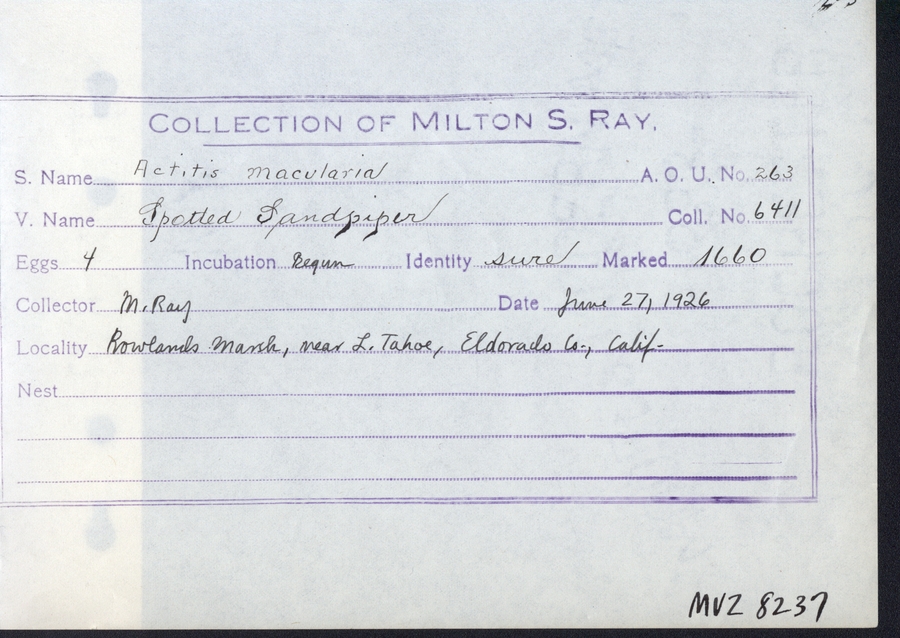 COLLECTION OF MILTON S. RAY.
S. Name Actitis macularia A. O. U. No. 263
V. Name Spotted Sandpiper Coll. No. 6411
Eggs 4 Incubation Begun Identity sure Marked 1660
Collector M. Ray Date June 27, 1926
Locality Rowlands Marsh, near L. Tahoe, Eldorado Co., Calif.
Nest
MVZ 8237